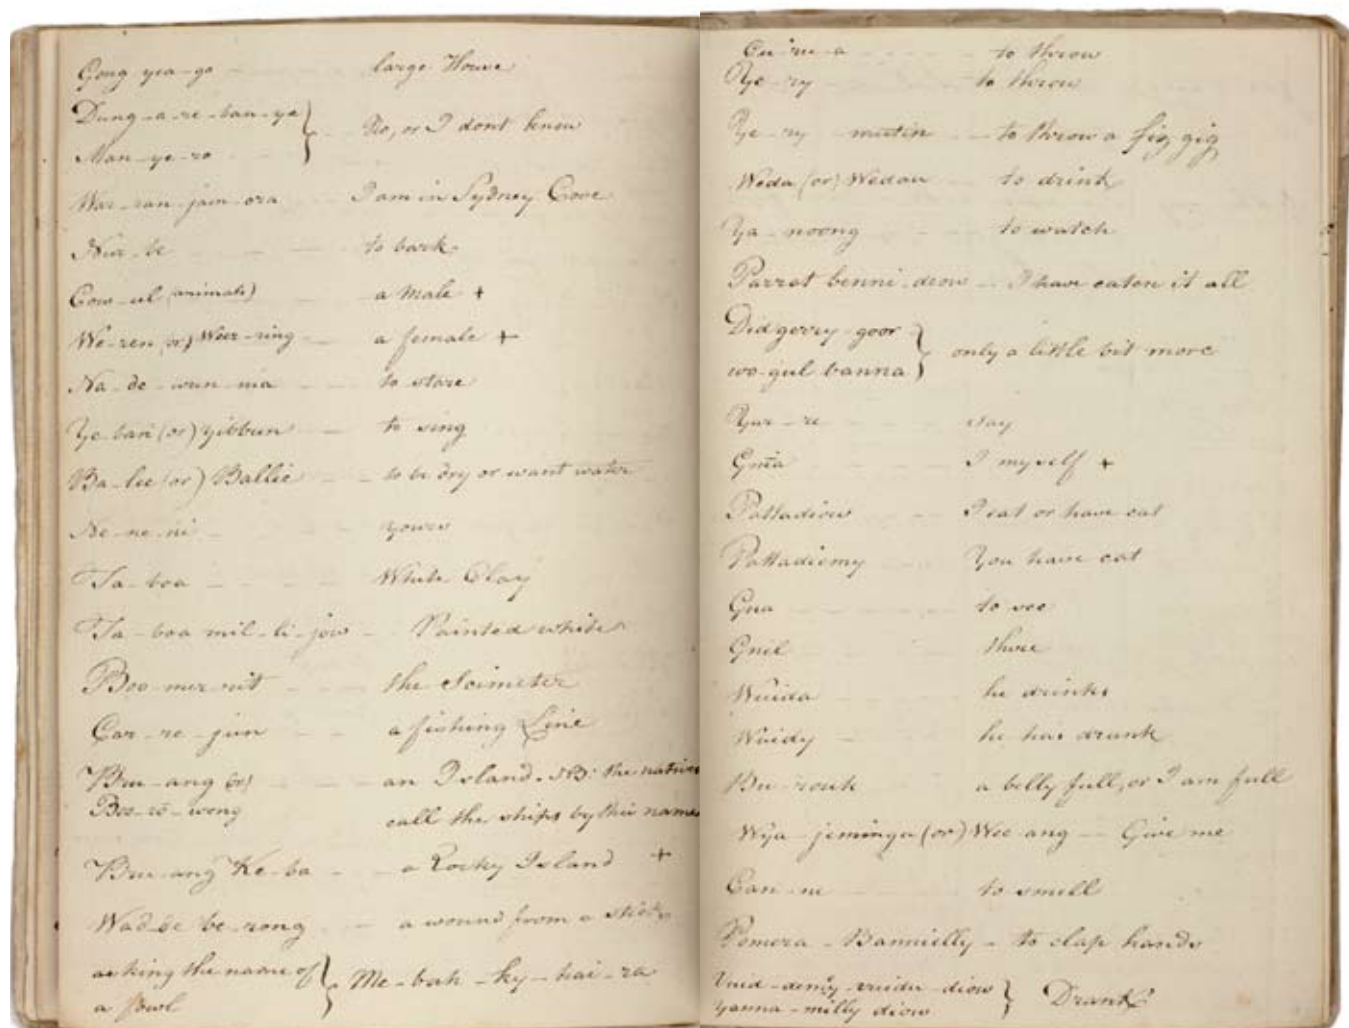 Gong-yea-go - large House
Dung-a-re-ban-ye
Man-ye-ro } No, or I dont know
War-ran-jam-ora I am in Sydney Cove
Nur-be to bark
Cow-ul (animals) a male +
We-ren (or) Weer-ring - a female +
Na-de-wun-nia to stare
Ye-ban (or) yibbun - to sing
Ba-lee (or) Ballie - to be dry or want water
Ne-ne-ni yours
Ta-boa White Clay
Ta-boa mil-li-jow - Painted white
Boo-mer-rit - the Scimeter
Car-re-jun - a fishing Line
Bru-ang (or) - an Island. NB: the natives
Boo-ro-wong call the ships by this name
Bru-ang Ke-ba - a Rocky Island +
Wad-de be-rong - a wound from a stick
asking the name of
a fowl } Me-bah-ky-hai-ra
to throw
Ye-ry to throw
Ye-ry mutin - to throw a fiz gig
Weda (or) Wedau to drink
Ya-noong - to watch
Parrat benni diow - I have eaten it all
Didgerry-goor
wo-gul banna } only a little bit more
Yar-re
Gnia I myself +
Pattadiow - I eat or have eat
Pattadiemy You have eat
Gna to see
Gnil three
Wuida he drinks
Wuidy he has drank
Bu-rouk a belly full, or I am full
Wya-jeminga (or) Wee ang - Give me
Can-ne to smell
Pomera-Bannielly - to clap hands
Vuid-demy-vuida-diow
yanna-milly diow } Drank